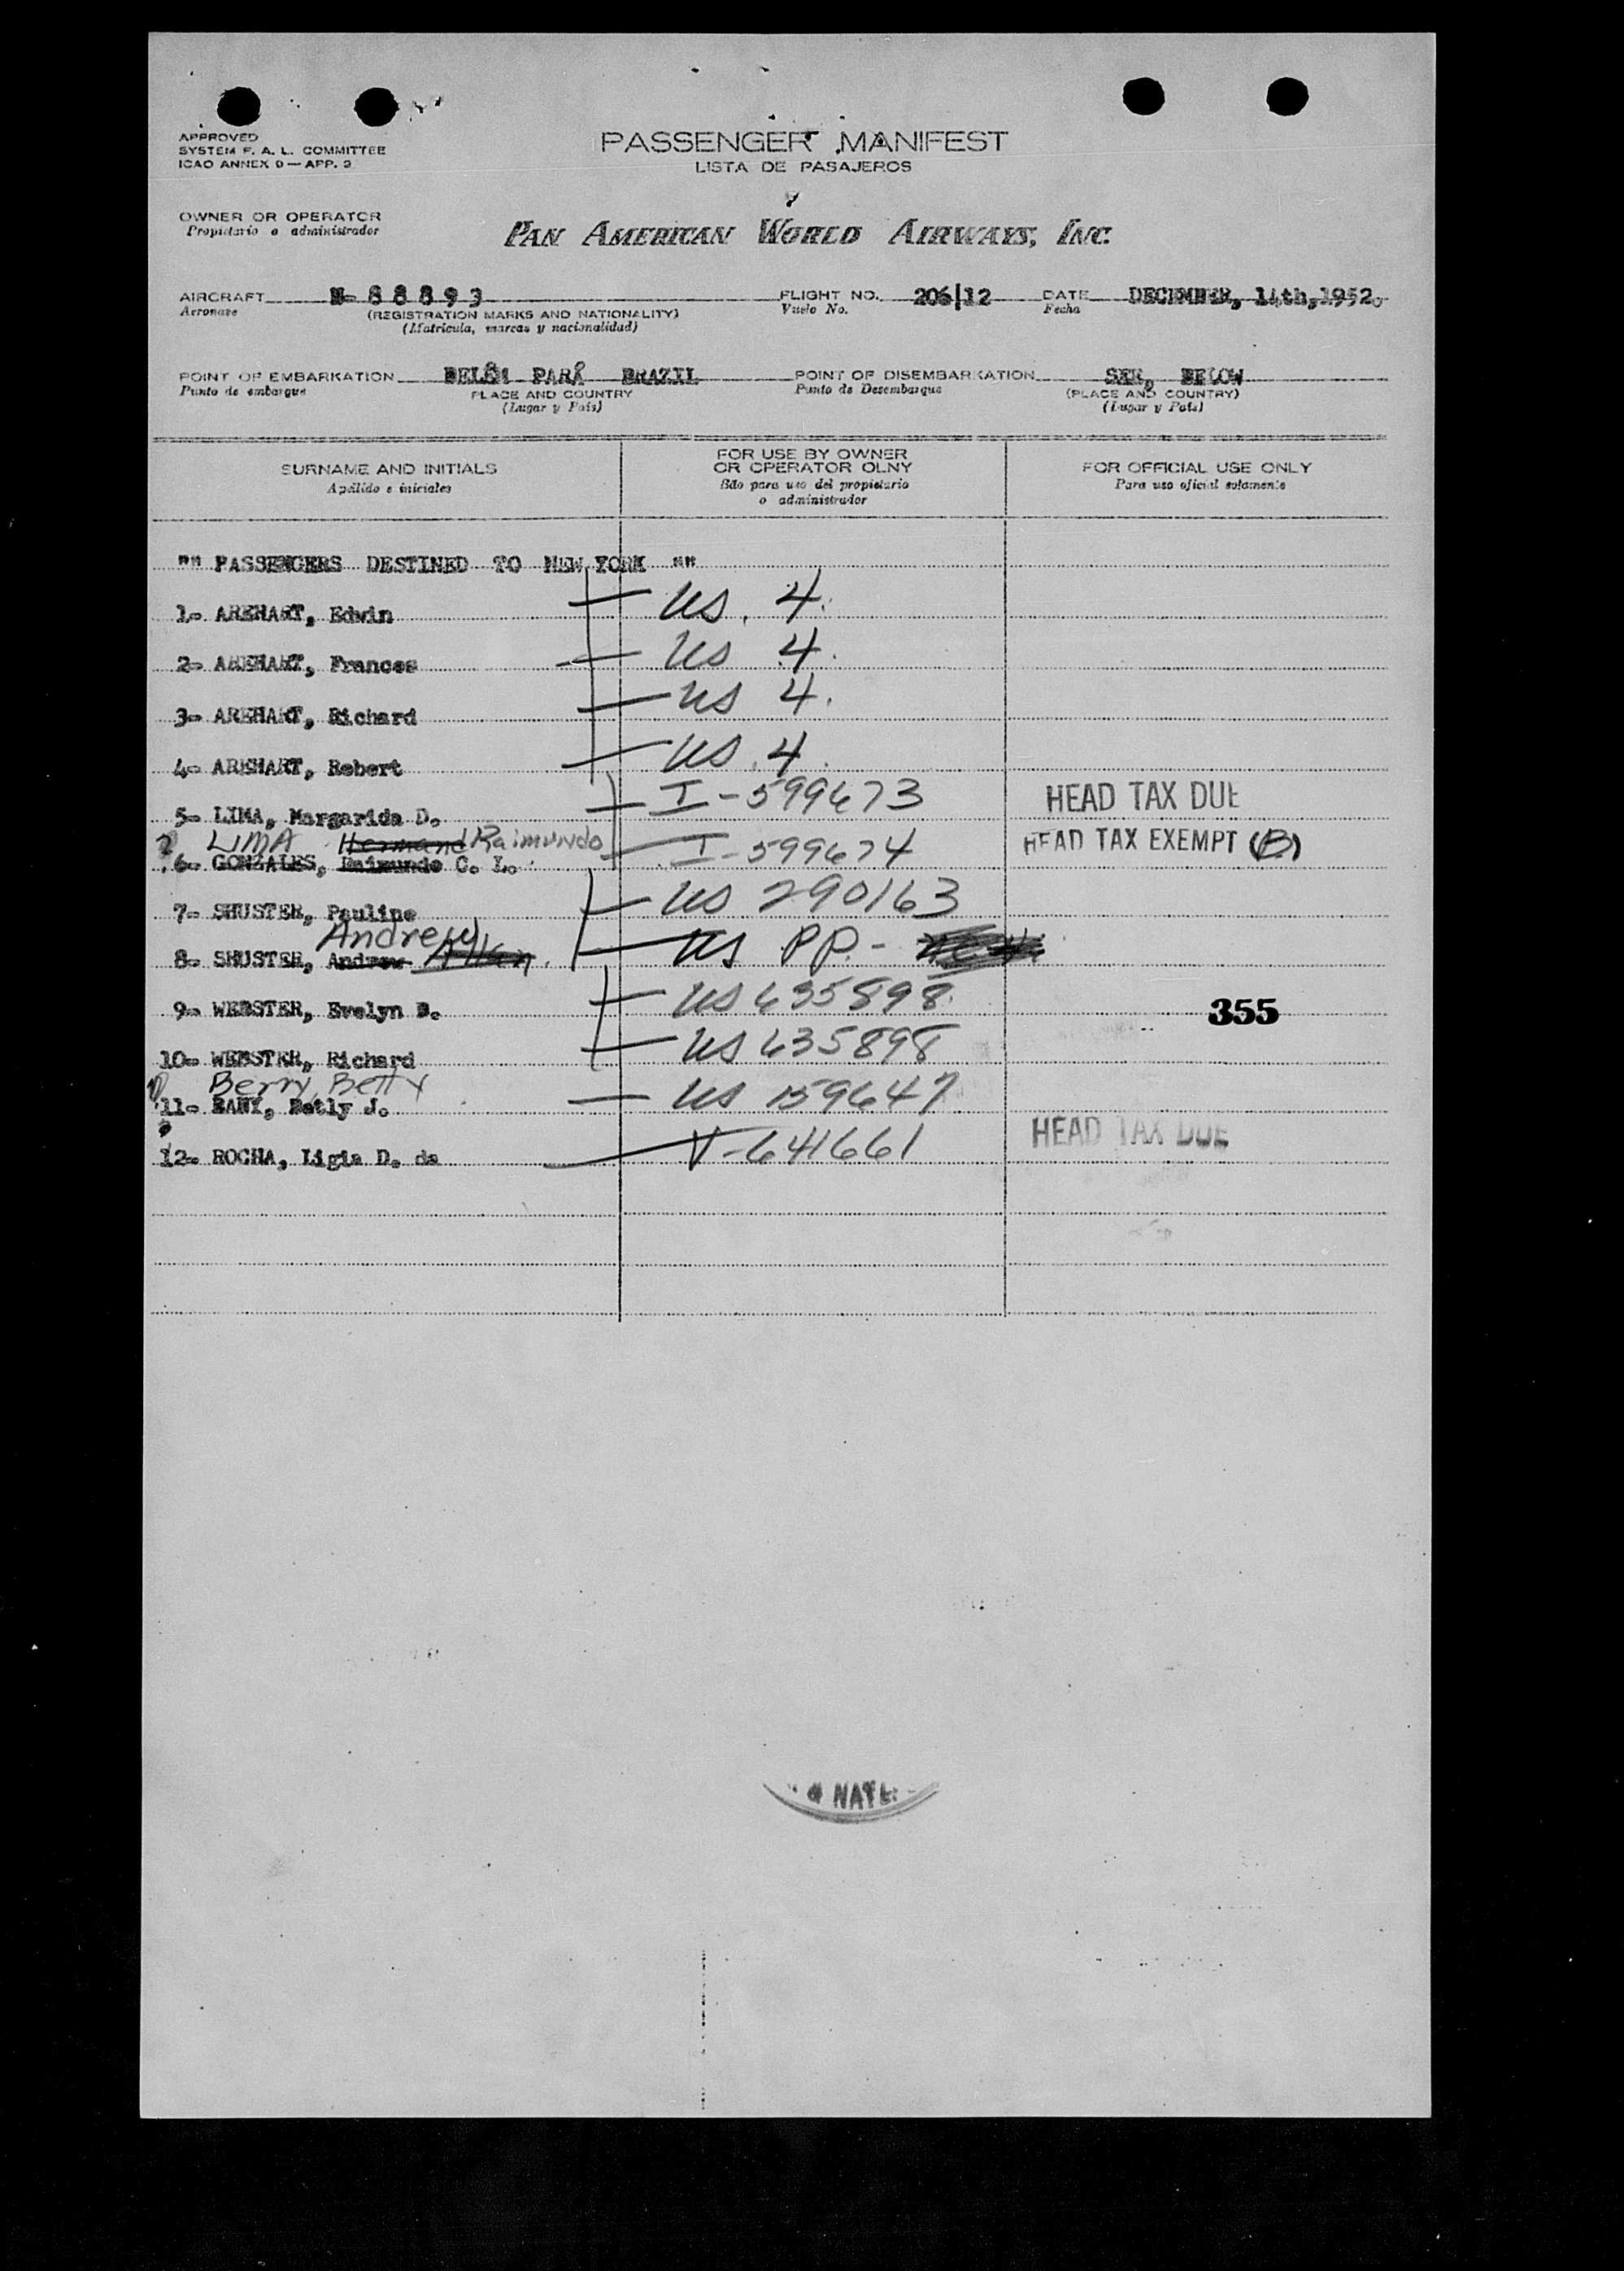 APPROVED
SYSTEM F. A. L. COMMITTEE
ICAO ANNEX 9 — APP. 2
PASSENGER MANIFEST
LISTA DE PASAJEROS
OWNER OR OPERATOR
Propietario o administrador
PAN AMERICAN WORLD AIRWAYS, INC.
AIRCRAFT N- 88893 FLIGHT NO. 206|12 DATE DECEMBER, 14th, 1952.
Aeronave (REGISTRATION MARKS AND NATIONALITY) Vuelo No. Fecha
(Matricula, marcas y nacionalidad)
POINT OF EMBARKATION BELÉM PARÁ BRAZIL POINT OF DISEMBARKATION SEE, BELOW
Punto de embarque PLACE AND COUNTRY Punto de Desembarque (PLACE AND COUNTRY)
(Lugar y País) (Lugar y País)
SURNAME AND INITIALS
Apellido e iniciales
FOR USE BY OWNER
OR OPERATOR OLNY
Sólo para uso del propietario
o administrador
FOR OFFICIAL USE ONLY
Para uso oficial solamente
"" PASSENGERS DESTINED TO NEW YORK ""
1- AREHART, Edwin US. 4.
2- AREHART, Frances US 4.
3- AREHART, Richard US 4.
4- AREHART, Robert US. 4.
5- LIMA, Margarida D. I-599673 HEAD TAX DUE
LIMA Hermand Raimundo
6- GONZALES, Raimundo C. L. I-599674 HEAD TAX EXEMPT (B)
7- SHUSTER, Pauline US 290163
Andrew
8- SHUSTER, Andrew Allen. US PP.-
9- WEBSTER, Evelyn B. US 635898 355
10- WEBSTER, Richard US 635898
Berry, Betty
11- BANY, Betly J. US 159647
12- ROCHA, Ligia D. da V-641661 HEAD TAX DUE
& NAT